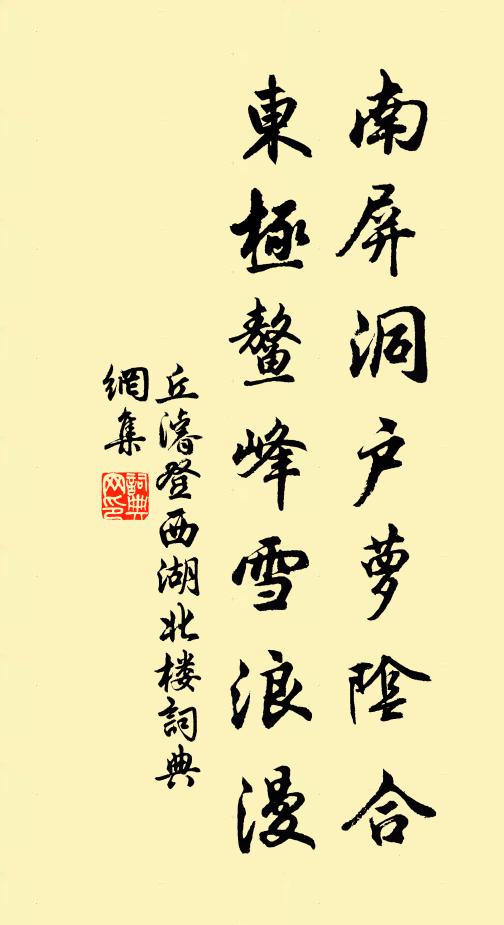 南屏洞户萝陰合
東極鼇峰雪浪漫
丘濬登西湖北楼詞典
網集
詞典
网印